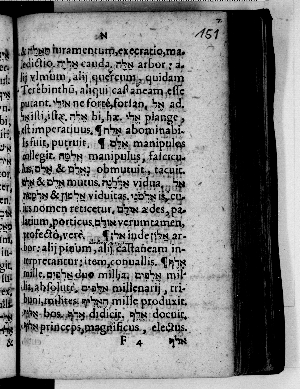 א
151
& תאלה iuramentum, execratio, ma-
ledictio. אליה cauda. אלה arbor: a-
lij vlmum, alij quercum, quidam
Terebinthũ, aliqui castaneam esse
putant. אולי ne fortè, forsan, אל ad.
אל isti, istæ. אלה hi, hæ. אלי plange,
est imperatiuus. ¶ אלח abominabi-
lis fuit, putruit. ¶ אלם manipulos
collegit. אלמה manipulus, fascicu-
lus. אלם & נאלם obmutuit, tacuit.
אלם & אלם mutus. אלמנה vidua,
& אלמנות viduitas. אלמני is, cu-
ius nomen reticetur. אולם ædes, pa-
latium, porticus. אולם veruntamen,
profectò, verè. ¶ אלון inde אלון ar-
bor: alij pinum, alij castaneam in-
terpretantur: item, conuallis. ¶ אלף
mille. אלפים duo millia. אלפים mil-
lia, absolutè. אלפים millenarij, tri-
buni, milites. האליף mille produxit.
אלף bos. אלף didicit. אלף docuit.
אלוף princeps, magnificus, electus.
F 4
אלוף
&